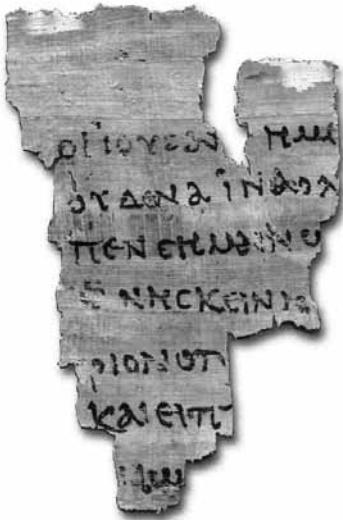 οιιουδαι ημι
ουδενα ϊναολ
πενϲημαινω
νηϲκεινιϲ
ριονοπ
καιειπ